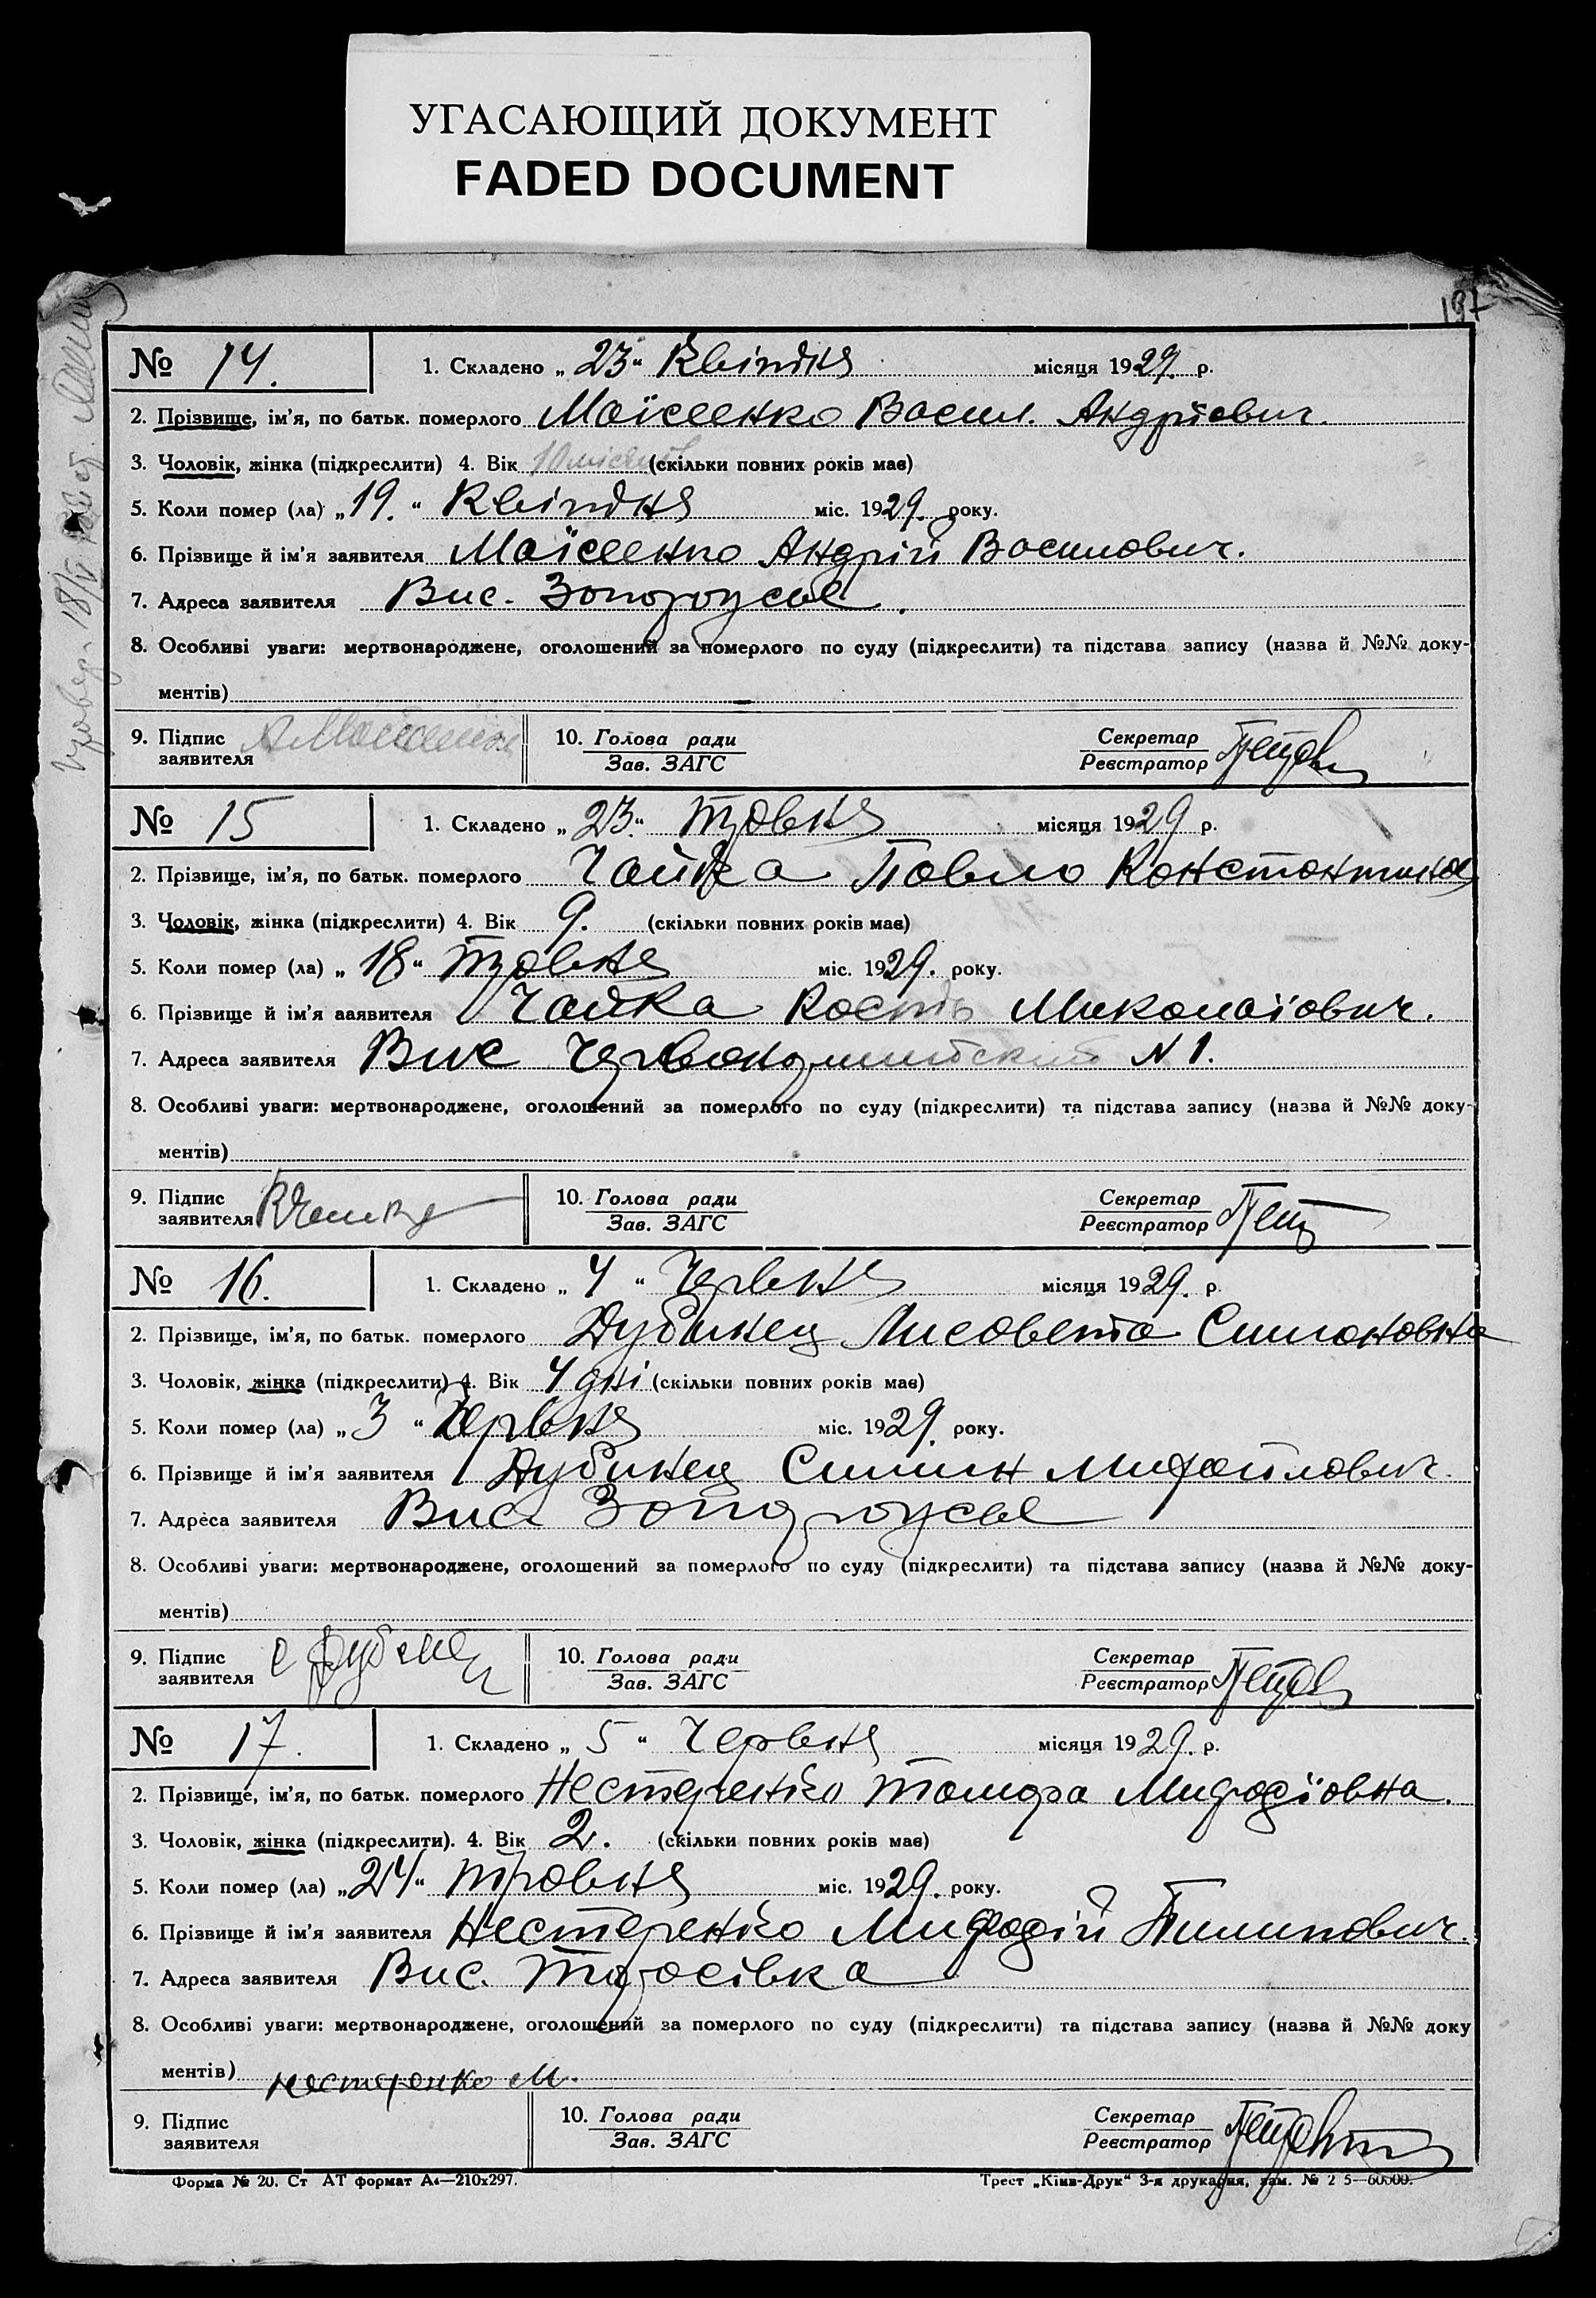 УГАСАЮЩИЙ ДОКУМЕНТ
FADED DOCUMENT
197
№ 14. 1. Складено „23“ Квітня місяця 1929. р.
2. Прізвище, ім’я, по батьк. померлого Моїсеенко Васил. Андрієвич.
3. Чоловік, жінка (підкреслити) 4. Вік 10 місяців (скільки повних років має)
5. Коли помер (ла) „19.“ Квітня міс. 1929. року.
6. Прізвище й ім’я заявителя Моїсеенко Андрій Василович.
7. Адреса заявителя Вис. Запорожье.
8. Особливі уваги: мертвонароджене, оголошений за померлого по суду (підкреслити) та підстава запису (назва й №№ доку-
ментів)
9. Підпис заявителя 10. Голова ради Зав. ЗАГС Секретар Реєстратор
№ 15 1. Складено „23.“ травня місяця 1929 р.
2. Прізвище, ім’я, по батьк. померлого Чайка Павло
3. Чоловік, жінка (підкреслити) 4. Вік 9. (скільки повних років має)
5. Коли помер (ла) „18“ травня міс. 1929. року.
6. Прізвище й ім’я ааявителя Чайка Кость Миколаїович.
7. Адреса заявителя Вис N 1.
8. Особливі уваги: мертвонароджене, оголошений за померлого по суду (підкреслити) та підстава запису (назва й №№ доку-
ментів)
9. Підпис заявителя 10. Голова ради Зав. ЗАГС Секретар Реєстратор
№ 16. 1. Складено „4“ Червня місяця 1929. р.
2. Прізвище, ім’я, по батьк. померлого Дубинец Лисавета Симоновна
3. Чоловік, жінка (підкреслити) 4. Вік 4 дні (скільки повних років має)
5. Коли помер (ла) „3“ Червня міс. 1929. року.
6. Прізвище й ім’я заявителя Дубинец Симин Михайлович.
7. Адреса заявителя Вис. Запорожье
8. Особливі уваги: мертвонароджене, оголошений за померлого по суду (підкреслити) та підстава запису (назва й №№ доку-
ментів)
9. Підпис заявителя С Дубинец 10. Голова ради Зав. ЗАГС Секретар Реєстратор
№ 17. 1. Складено „5“ Червня місяця 1929. р.
2. Прізвище, ім’я, по батьк. померлого Нестеренко Тамара Мифодіовна.
3. Чоловік, жінка (підкреслити). 4. Вік 2. (скільки повних років має)
5. Коли помер (ла) „24“ травня міс. 1929. року.
6. Прізвище й ім’я заявителя Нестеренко Мифодій Пилипович.
7. Адреса заявителя Вис. Тарасівка
8. Особливі уваги: мертвонароджене, оголошений за померлого по суду (підкреслити) та підстава запису (назва й №№ доку
ментів) Нестеренко М.
9. Підпис заявителя 10. Голова ради Зав. ЗАГС Секретар Реєстратор
Форма № 20. Ст АТ формат А4—210х297. Трест „Київ-Друк“ 3-я друкарня, зам. № 2 5—60000.